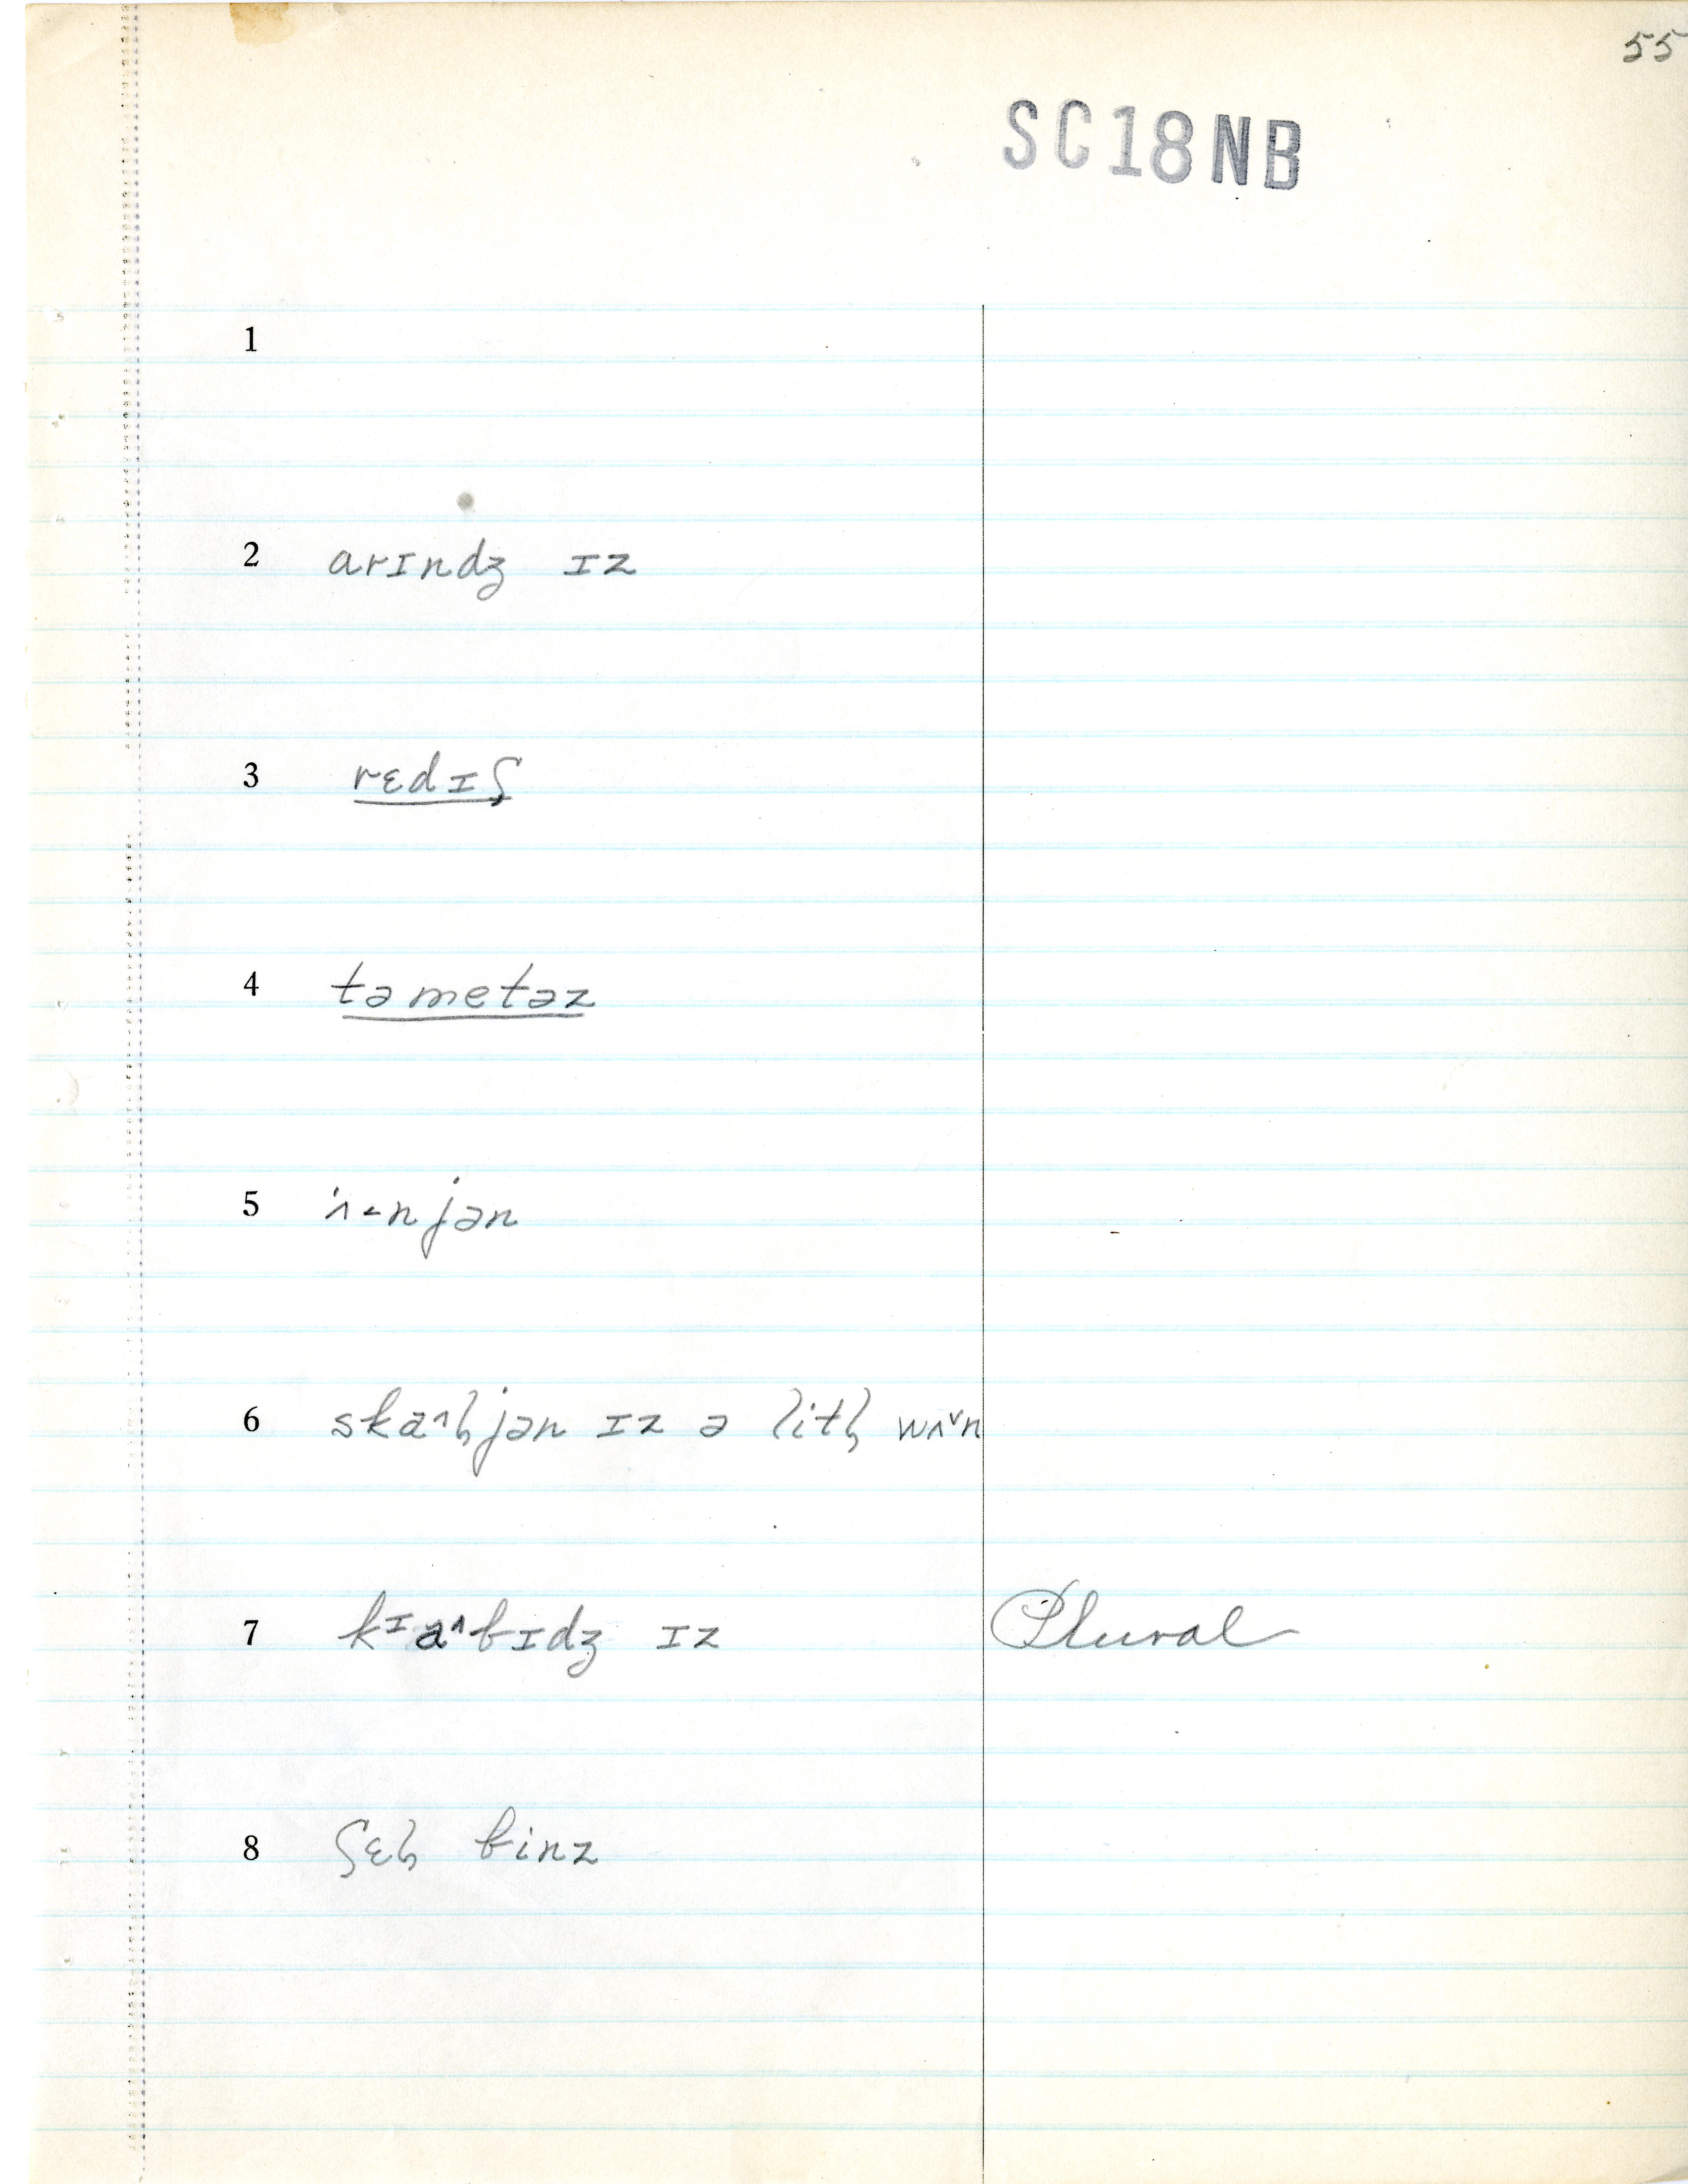 55
SC18NB
1
2 arɪndʒ ɪz
3 rɛdɪʃ
4 təmetəz
5 ʌ˂njən
6 skaˆɫjən ɪz ə litɫ wʌˇn
7 kᶦaˆbɪdʒ ɪz Plural
8 ʃɛɫ binz